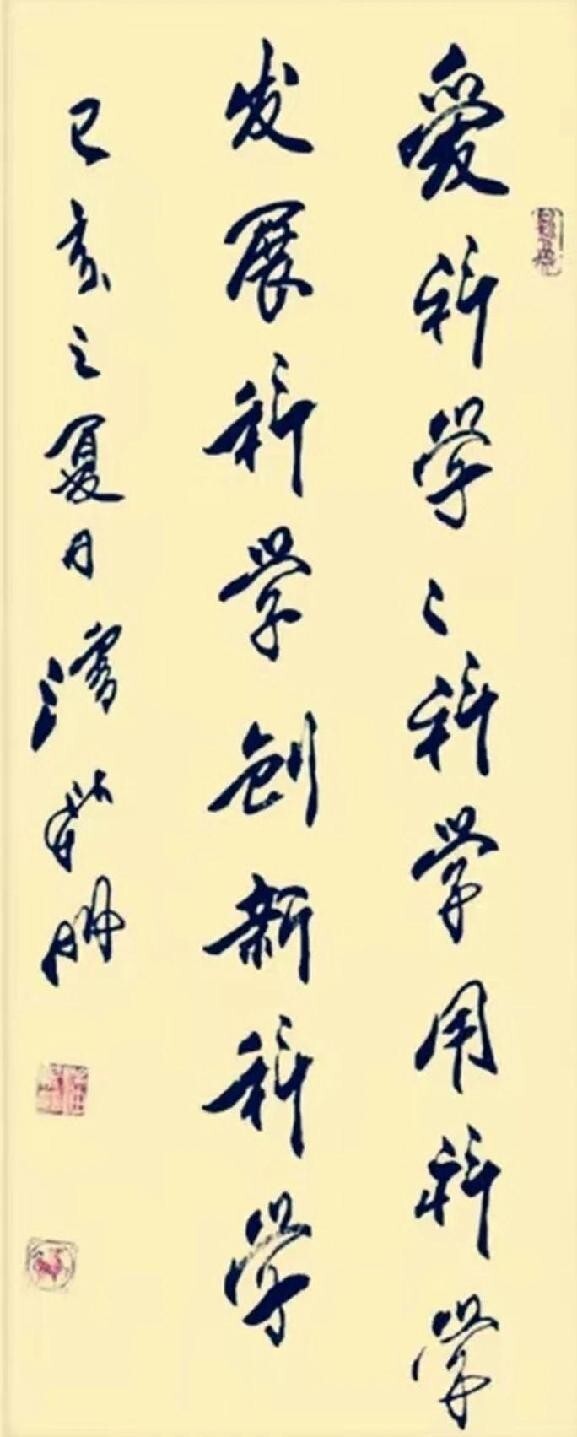 爱科学〻科学用科学
发展科学创新科学
己亥之夏月潘